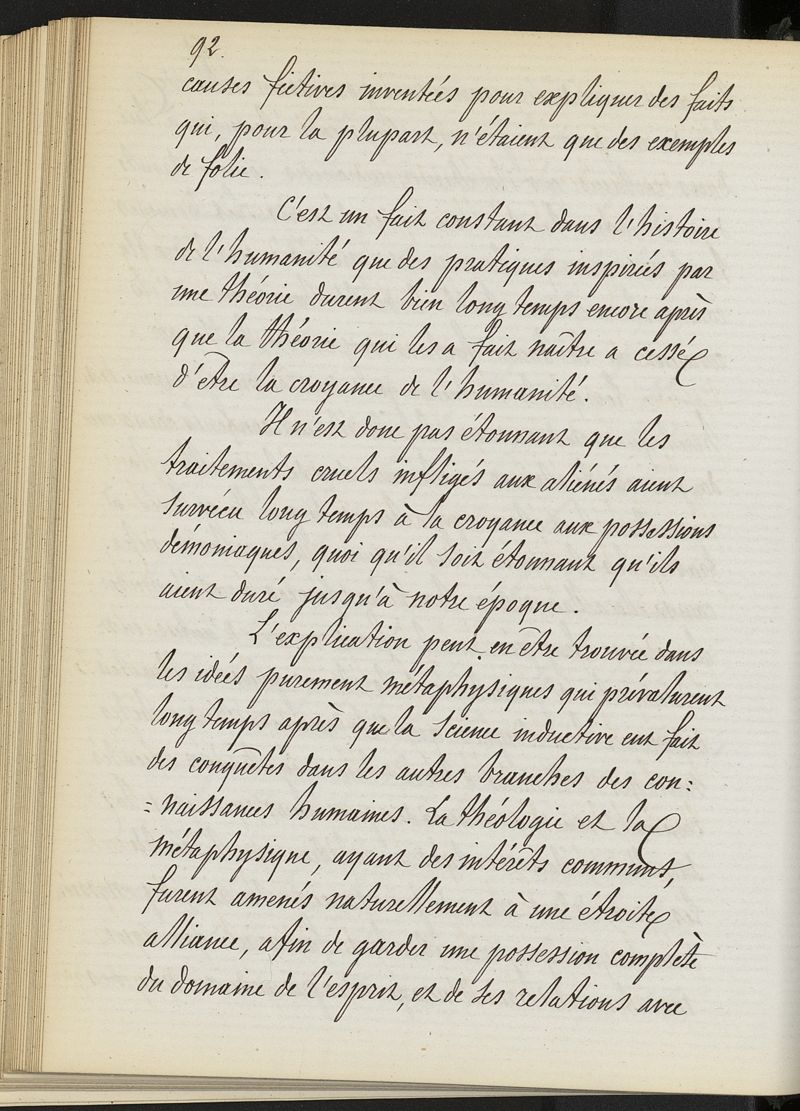 92.
causes fictives inventées pour expliquer des faits
qui, pour la plupart, n'étaient que des exemples
de folie.
C'est un fait constant dans l'histoire
de l'humanité que des pratiques inspirées par
une théorie durent bien long temps encore après
que la théorie qui les a fait naître a cessé
d'être la croyance de l'humanité.
Il n'est donc pas étonnant que les
traitements cruels infligés aux aliénés aient
survécu long temps à la croyance aux possessions
démoniaques, quoi qu'il soit étonnant qu'ils
aient duré jusqu'à notre époque.
L'explication peut en être trouvée dans
les idées purement métaphysiques qui prévalurent
long temps après que la science inductive eut fait
des conquêtes dans les autres branches des con:
=naissances humaines. La théologie et la
métaphysique, ayant des intérêts communs,
furent amenés naturellement à une étroite
alliance, afin de garder une possession complète
du domaine de l'esprit, et de ses relations avec